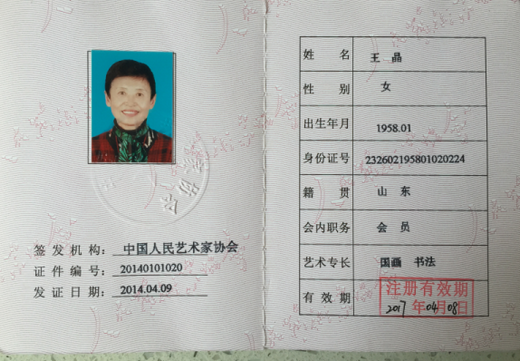 签发机构：中国人民艺术家协会
证件编号：20140101020
发证日期：2014.04.09
姓名 王晶
性别 女
出生年月 1958.01
身份证号 232602195801020224
籍贯 山东
会内职务 会员
艺术专长 国画 书法
有效期 注册有效期
2017年04月08日